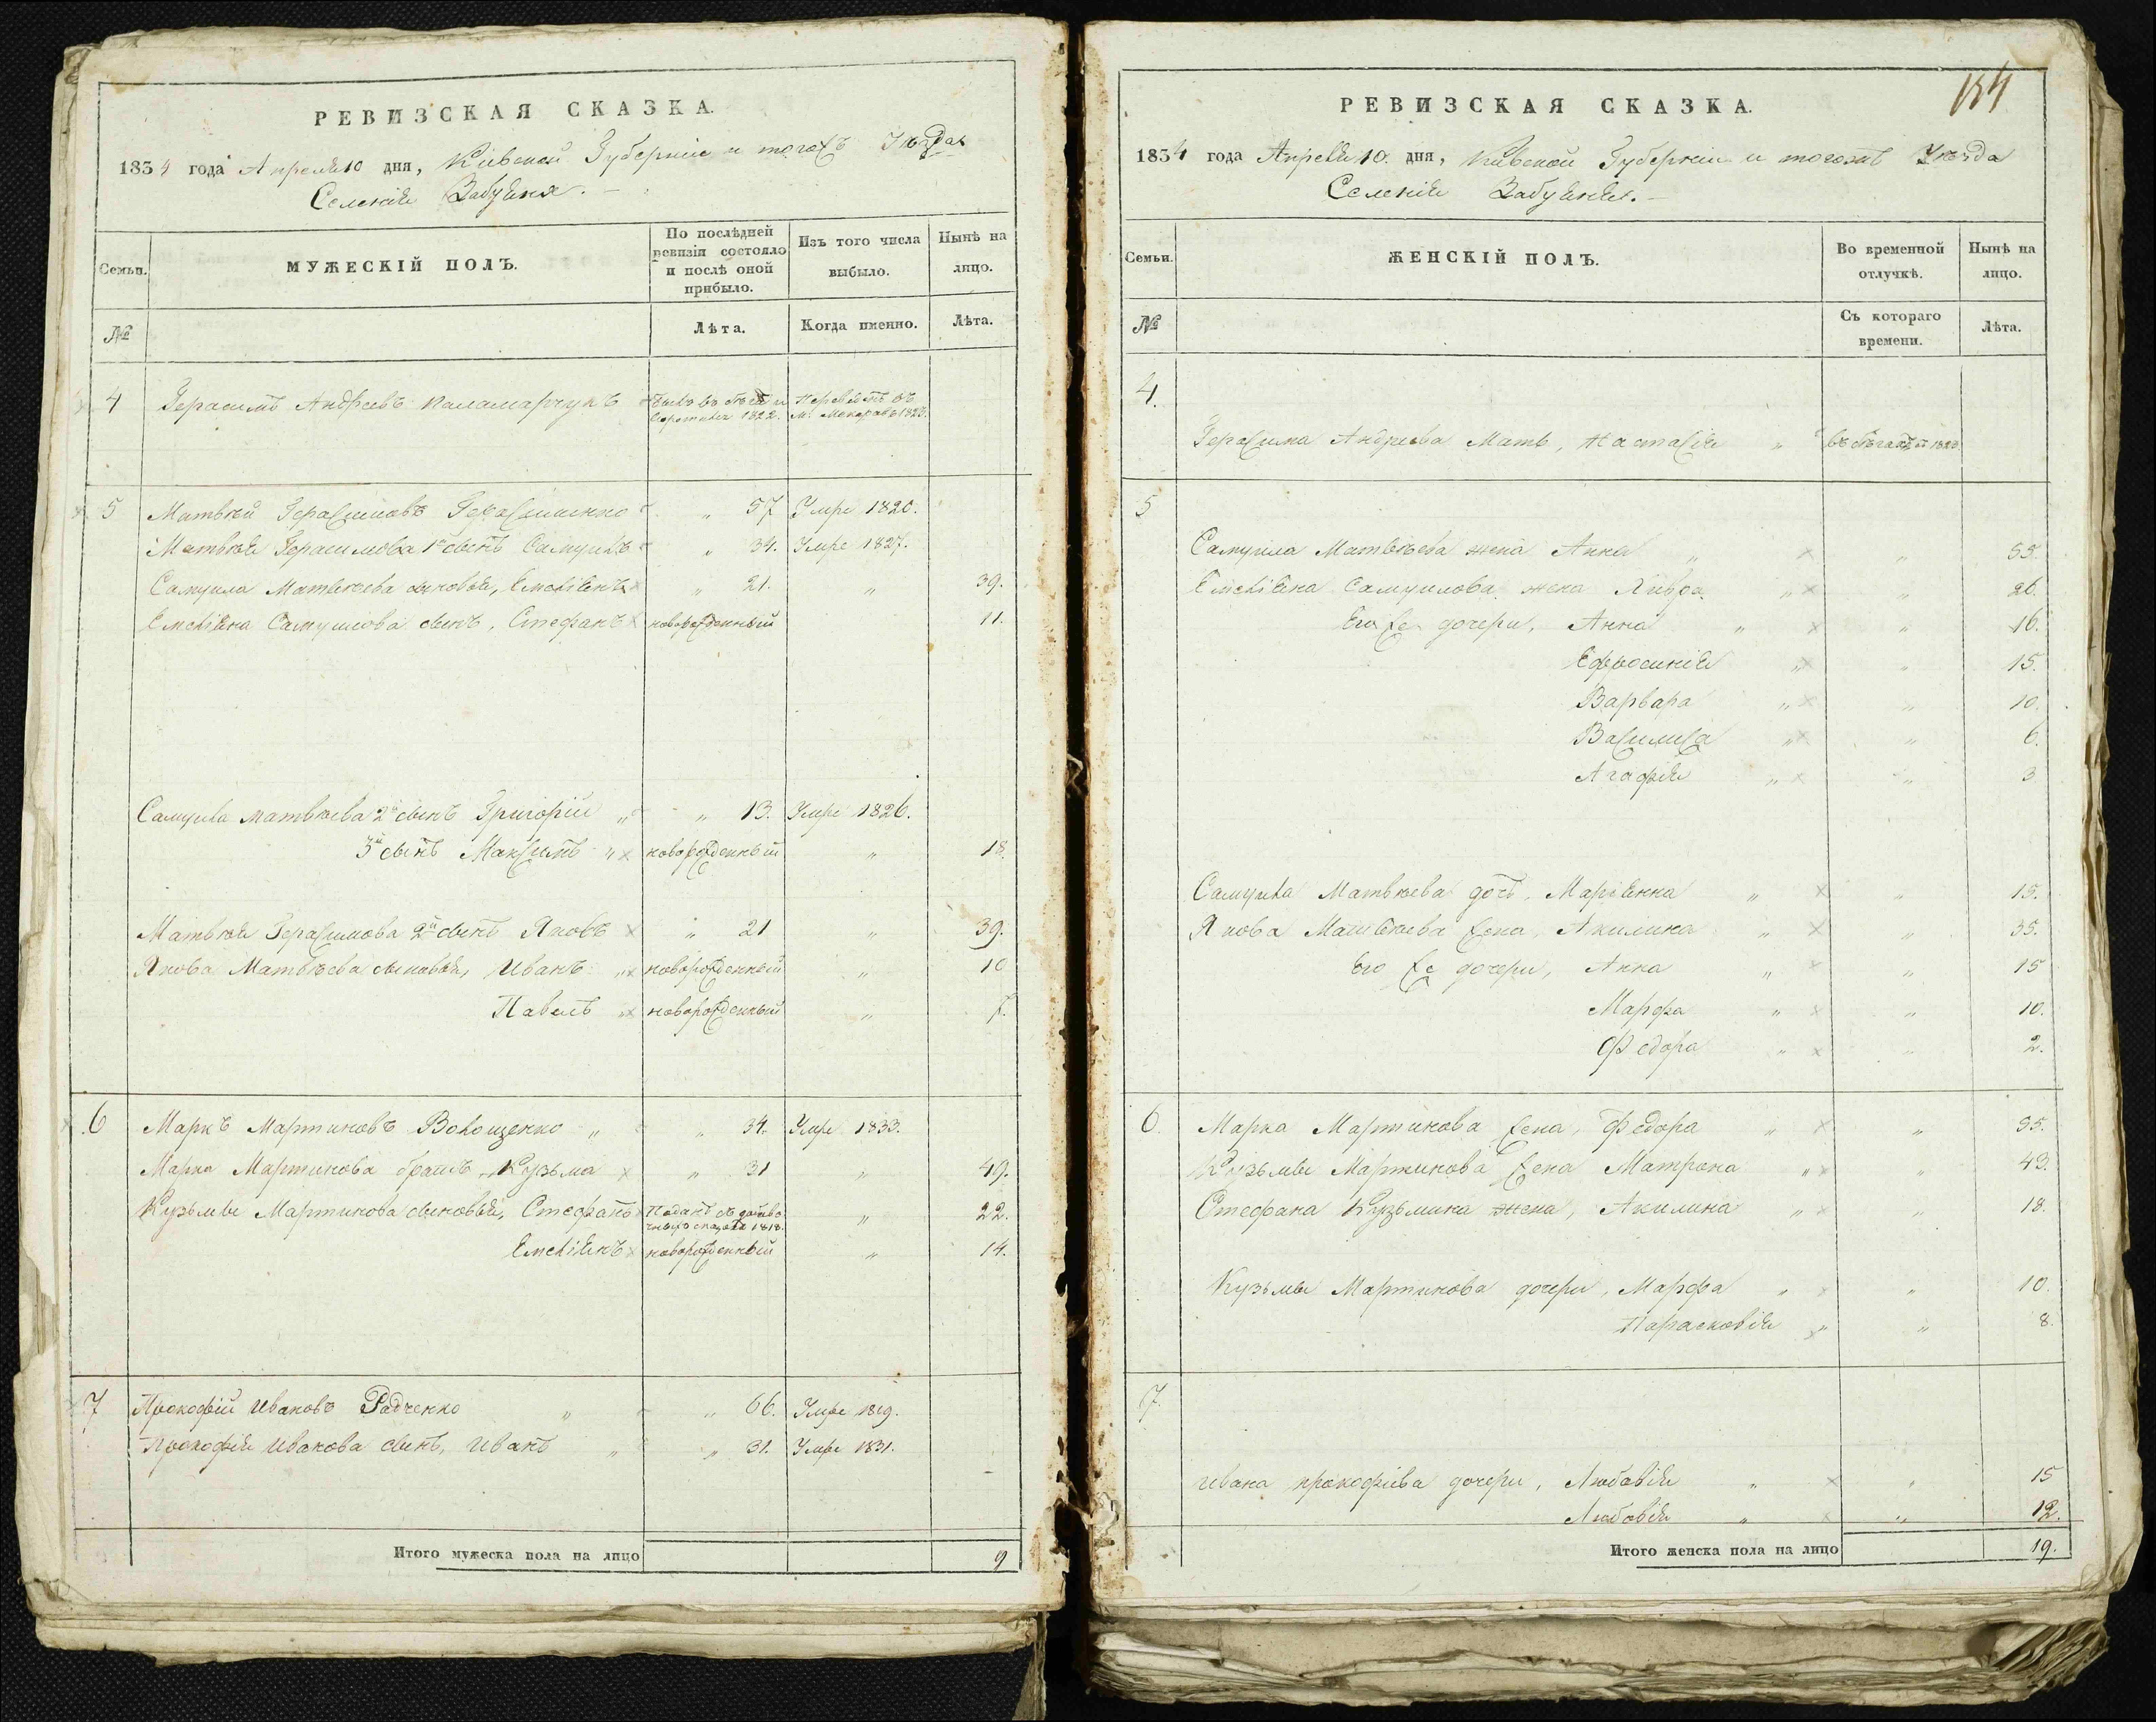 РЕВИЗСКАЯ СКАЗКА.
1834 года Апреля 10 дня, Кіевской Губерніи и тогожъ Уѣзда
Селенія Забуяня.
Семьи.
МУЖЕСКІЙ ПОЛЪ.
По послѣдней ревизіи состояло и послѣ оной прибыло.
Изъ того числа выбыло.
Нынѣ на лицо.
№
Лѣта.
Когда именно.
Лѣта.
4 Герасимъ Андреевъ Паламарчукъ былъ въ 1822. въ М. 
5 Матвѣй Герасимовъ Герасименко " 57 Умре 1820.
Матвѣя Герасимова 1й сынъ Самуилъ " 34. Умре 1827.
Самуила Матвѣева сыновья, Емеліянъ " 21. " 39.
Емеліяна Самуилова сынъ, Стефанъ новорожденный 11.
Самуила Матвѣева 2й сынъ Григорій " " 13. Умре 1826.
3й сынъ Максимъ " новорожденный " 18.
Матвѣя Герасимова 2й сынъ Яковъ " 21 " 39.
Якова Матвѣева сыновья, Иванъ " новорожденный " 10
Павелъ " новорожденный " 7.
6 Маркъ Мартиновъ Волощенко " " 34. Умре 1833.
Марка Мартинова братъ, Кузьма " 31 " 49.
Кузьмы Мартинова сыновья, Стефанъ Поданъ 1818. " 22.
Емеліянъ новорожденный " 14.
7 Прокофій Ивановъ Радченко " " 66. Умре 1819.
Прокофія Иванова сынъ, Иванъ " " 31. Умре 1831.
Итого мужеска пола на лицо 9
154
РЕВИЗСКАЯ СКАЗКА.
1834 года Апреля 10. дня, Кіевской Губерніи и тогожъ Уѣзда
Селенія Забуяня.
Семьи.
ЖЕНСКІЙ ПОЛЪ.
Во временной отлучкѣ.
Нынѣ на лицо.
№
Съ котораго времени.
Лѣта.
4.
Герасима Андреева Мать, Настасія " въ бѣгахъ
5
Самуила Матвѣева жена Анна " " 55.
Емеліяна Самуилова жена Явдо " " 26.
Его же дочери, Анна " " 16.
Ефросинія " " 15.
Варвара " " 10.
Василиса " " 6.
Агафія " " 3
Самуила Матвѣева дочь, Маріянна " " 15.
Якова Матвѣева жена, Акилина " " 35.
Его же дочери, Анна " " 15
Марфа " " 10.
Федора " " 2.
6. Марка Мартинова жена, Федора " " 55.
Кузьмы Мартинова жена Матрона " " 43.
Стефана Кузьмина жена, Акилина " " 18.
Кузьмы Мартинова дочери, Марфа " " 10.
Парасковія " " 8.
7.
Ивана Прокофіева дочери, Любовія " " 15
Любовія " " 12.
Итого женска пола на лицо 19.